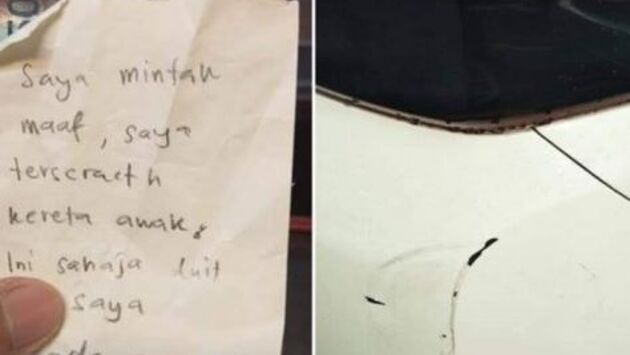 Saya mintak
maaf, saya
terscratch
kereta awak.
Ini sahaja duit
saya
ada